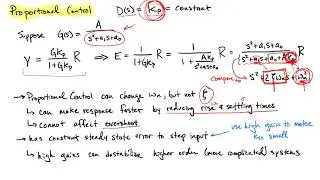 Proportional Control D(s) = Kp = constant
Suppose G(s) = A / (s²+a₁s+a₀)
Y = GKp / (1+GKp) R ⇒ E = 1 / (1+GKp) R = 1 / (1 + AKp / (s²+a₁s+a₀)) R = (s²+a₁s+a₀) / (s²+a₁s+a₀+AKp) R
compare to s²+2ζωₙs+ωₙ²
• Proportional Control can change ωₙ, but not ζ
↳ can make response faster by reducing rise & settling times
↳ cannot affect overshoot
• has constant steady state error to step input
use high gain to make ess small
↳ high gains can destabilize higher order (more complicated) systems